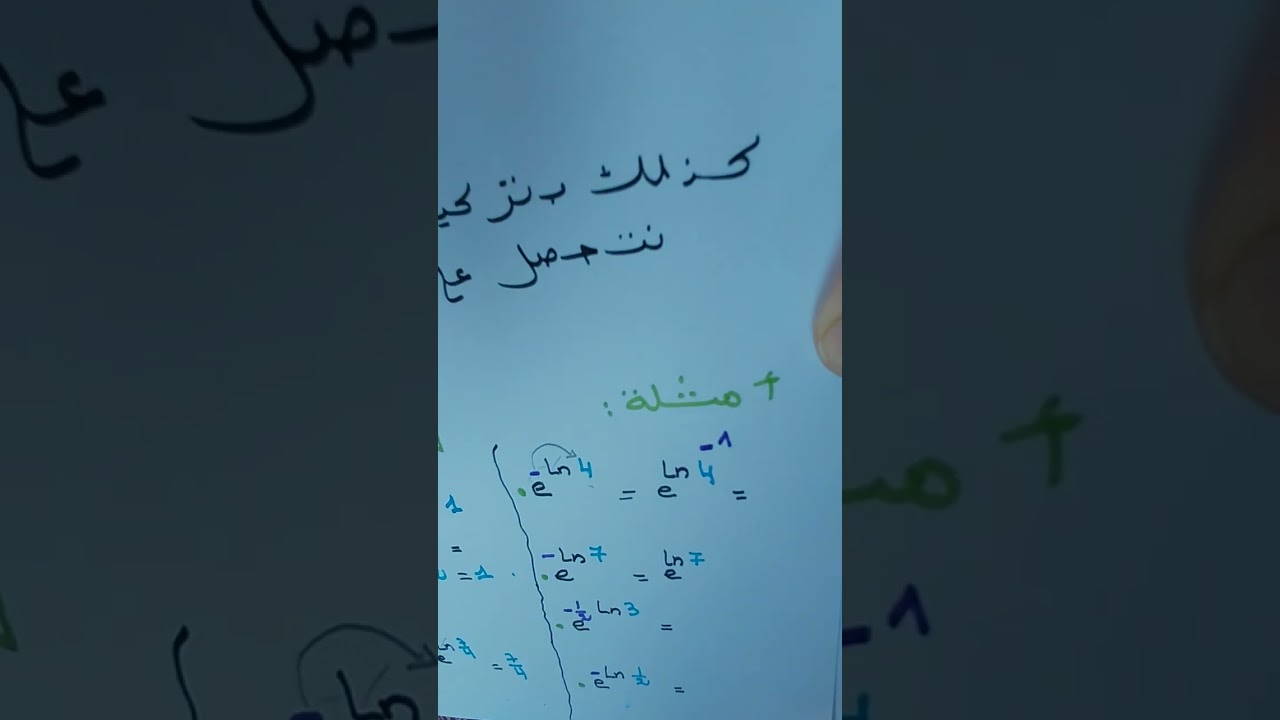 كذلك
نتحصل
أمثلة :
e^-ln 4 = e^ln 4^-1 =
1
=
= 1
e^-ln 7 = e^ln 7
e^-1/2 ln 3 =
e^ln 7/4 = 7/4
e^-ln 1/2 =